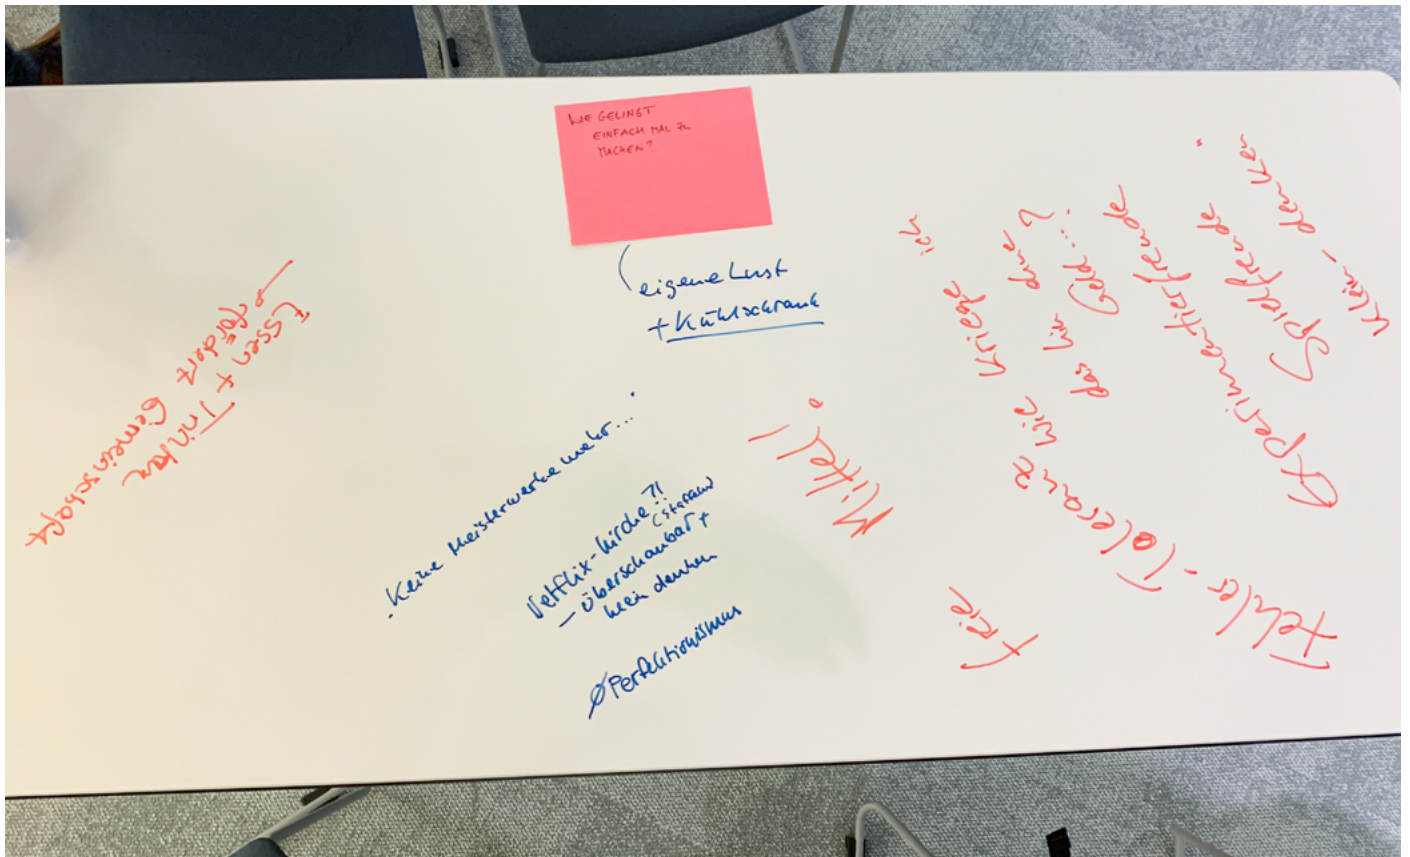 WIE GELINGT
EINFACH MAL ZU
MACHEN?
eigene Lust
+ Kühlschrank
Essen + Trinken
→ fördert Gemeinschaft
Keine Meisterwerke mehr...
Netflix-Kirche?!
– überschaubar +
klein denken
Ø Perfektionismus
Mittel!
wie kriege ich
das hin ohne
Geld...?
Fehler-Toleranz
Experimentierfreude
Spielfreude
"klein-denken"